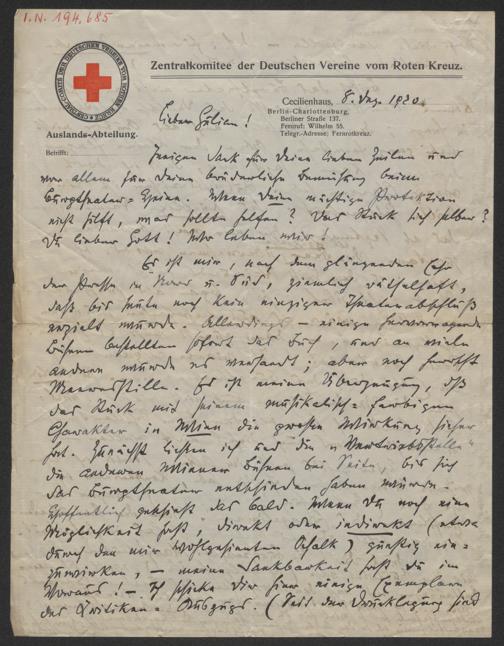 I.N. 194.685
Zentralkomitee der Deutschen Vereine vom Roten Kreuz.
Auslands-Abteilung.
Betrifft:
Cecilienhaus, 8. Dez. 1920
Berlin-Charlottenburg,
Berliner Straße 137.
Fernruf: Wilhelm 55.
Telegr.-Adresse: Fernrotkreuz.
Lieber
Innigen Dank für Deine lieben Zeilen und
vor allem für Deine brüderliche Bemühung beim
Burgtheater. Wenn Deine mächtige Protektion
nicht hilft, was sollte helfen? Das Stück sich selber?
Du lieber Gott! Wo leben wir!
Es ist mir, nach dem glänzenden Echo
der Presse in Nord u. Süd, ziemlich rätselhaft,
daß bis heute noch kein einziger Theaterabschluß
erzielt wurde. Allerdings – einige hervorragende
Bühnen bestellten sofort das Buch, und an viele
andere wurde es versandt; aber noch herrscht
Meeresstille. Es ist meine Überzeugung, daß
das Stück mit seinem musikalisch-farbigen
Charakter in Wien die großen Wirkung sicher
hat. Zunächst ließen ich und die „Vertriebsstelle“
die anderen Wiener Bühnen bei Seite, bis sich
das Burgtheater entschieden haben würde.
Hoffentlich geschieht das bald. Wenn Du noch eine
Möglichkeit hast, direkt oder indirekt (etwa
durch den mir wohlgesinnten) günstig ein-
zuwirken, – meine Dankbarkeit hast Du im
Voraus! – Ich schicke Dir hier einige Exemplare
des Kritiken-Auszugs. (Seit der Drucklegung sind